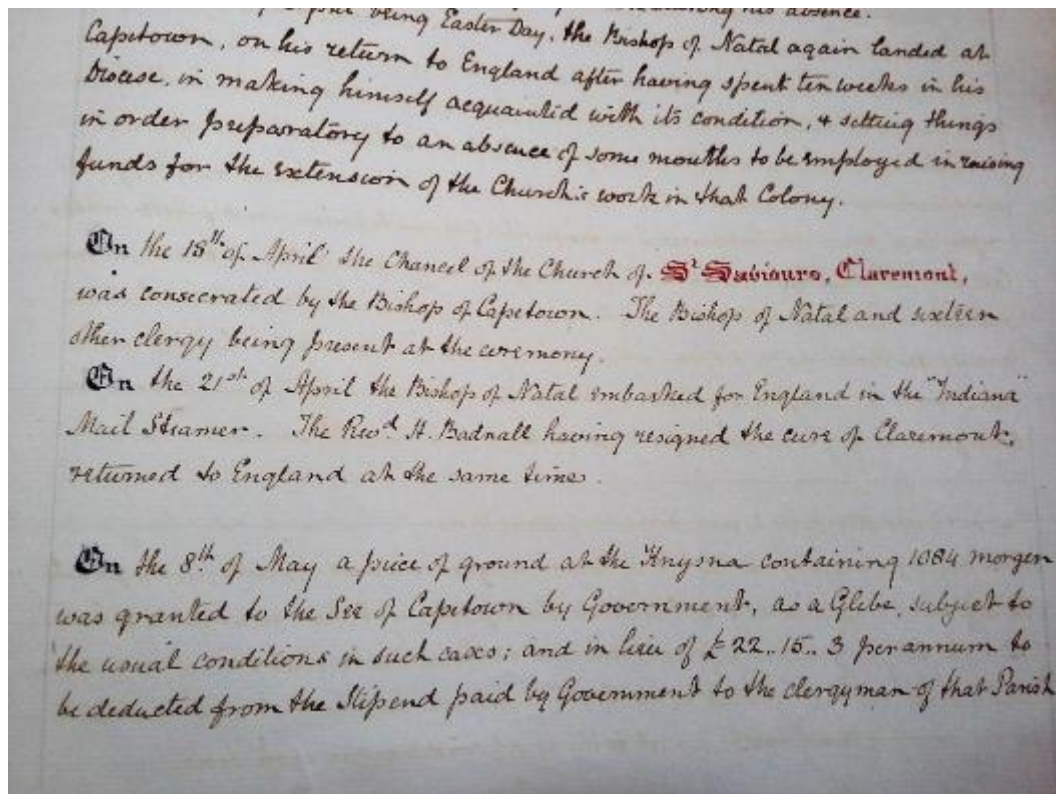 being Easter Day, the Bishop of Natal again landed at
Capetown, on his return to England after having spent ten weeks in his
Diocese, in making himself acquainted with its condition, & setting things
in order preparatory to an absence of some months to be employed in raising
funds for the extension of the Church's work in that Colony.
On the 18th of April the Chancel of the Church of St Saviours, Claremont,
was consecrated by the Bishop of Capetown. The Bishop of Natal and sixteen
other clergy being present at the ceremony.
On the 21st of April the Bishop of Natal embarked for England in the "Indiana"
Mail Steamer. The Revd H. Badnall having resigned the cure of Claremont,
returned to England at the same time.
On the 8th of May a piece of ground at the Knysna containing 1084 morgen
was granted to the See of Capetown by Government, as a Glebe, subject to
the usual conditions in such cases; and in lieu of £22..15..3 per annum to
be deducted from the Stipend paid by Government to the clergyman of that Parish